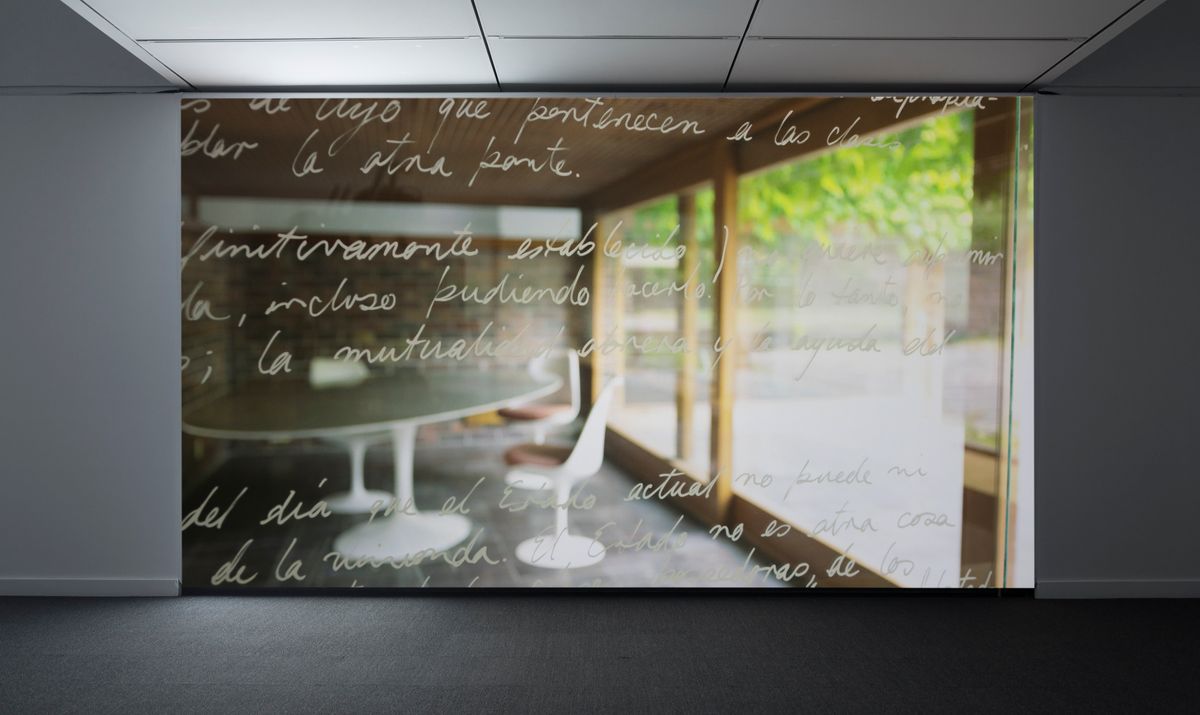 s de lujo que pertenecen a las clases
blar la otra parte.
finitivamente establecido) no quiere suprimir
da, incluso pudiendo hacerlo! Por lo tanto, no
s; la mutualidad obrera y la ayuda del
del día que el Estado actual no puede ni
de la vivienda. El Estado no es otra cosa
de los